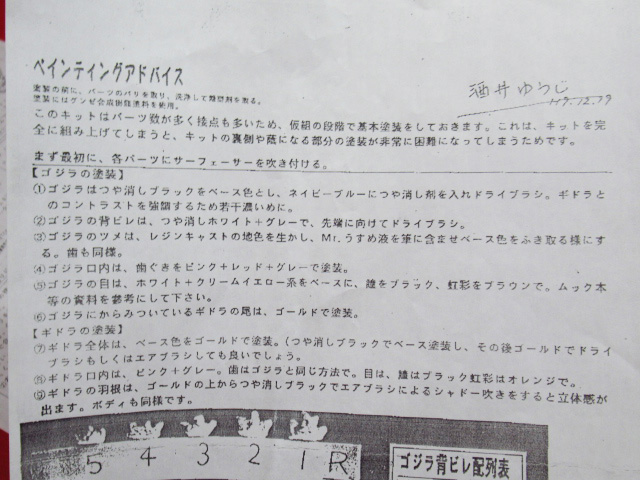 ペインティングアドバイス
塗装の前に、パーツのバリを取り、洗浄して離型剤を取る。
塗装にはグンゼ合成樹脂塗料を使用。
酒井ゆうじ
このキットはパーツ数が多く接点も多いため、仮組の段階で基本塗装をしておきます。これは、キットを完
全に組み上げてしまうと、キットの裏側や蔭になる部分の塗装が非常に困難になってしまうためです。
まず最初に、各パーツにサーフェーサーを吹き付ける。
【ゴジラの塗装】
①ゴジラはつや消しブラックをベース色とし、ネイビーブルーにつや消し剤を入れドライブラシ。ギドラと
のコントラストを強調するため若干濃いめに。
②ゴジラの背ビレは、つや消しホワイト+グレーで、先端に向けてドライブラシ。
③ゴジラのツメは、レジンキャストの地色を生かし、Mr.うすめ液を筆に含ませベース色をふき取る様にす
る。歯も同様。
④ゴジラ口内は、歯ぐきをピンク+レッド+グレーで塗装。
⑤ゴジラの目は、ホワイト+クリームイエロー系をベースに、瞳をブラック、虹彩をブラウンで。ムック本
等の資料を参考にして下さい。
⑥ゴジラにからみついているギドラの尾は、ゴールドで塗装。
【ギドラの塗装】
⑦ギドラ全体は、ベース色をゴールドで塗装。(つや消しブラックでベース塗装し、その後ゴールドでドライ
ブラシもしくはエアブラシしても良いでしょう。
⑧ギドラ口内は、ピンク+グレー。歯はゴジラと同じ方法で。目は、瞳はブラック虹彩はオレンジで。
⑨ギドラの羽根は、ゴールドの上からつや消しブラックでエアブラシによるシャドー吹きをすると立体感が
出ます。ボディも同様です。
5 4 3 2 1R
ゴジラ背ビレ配列表